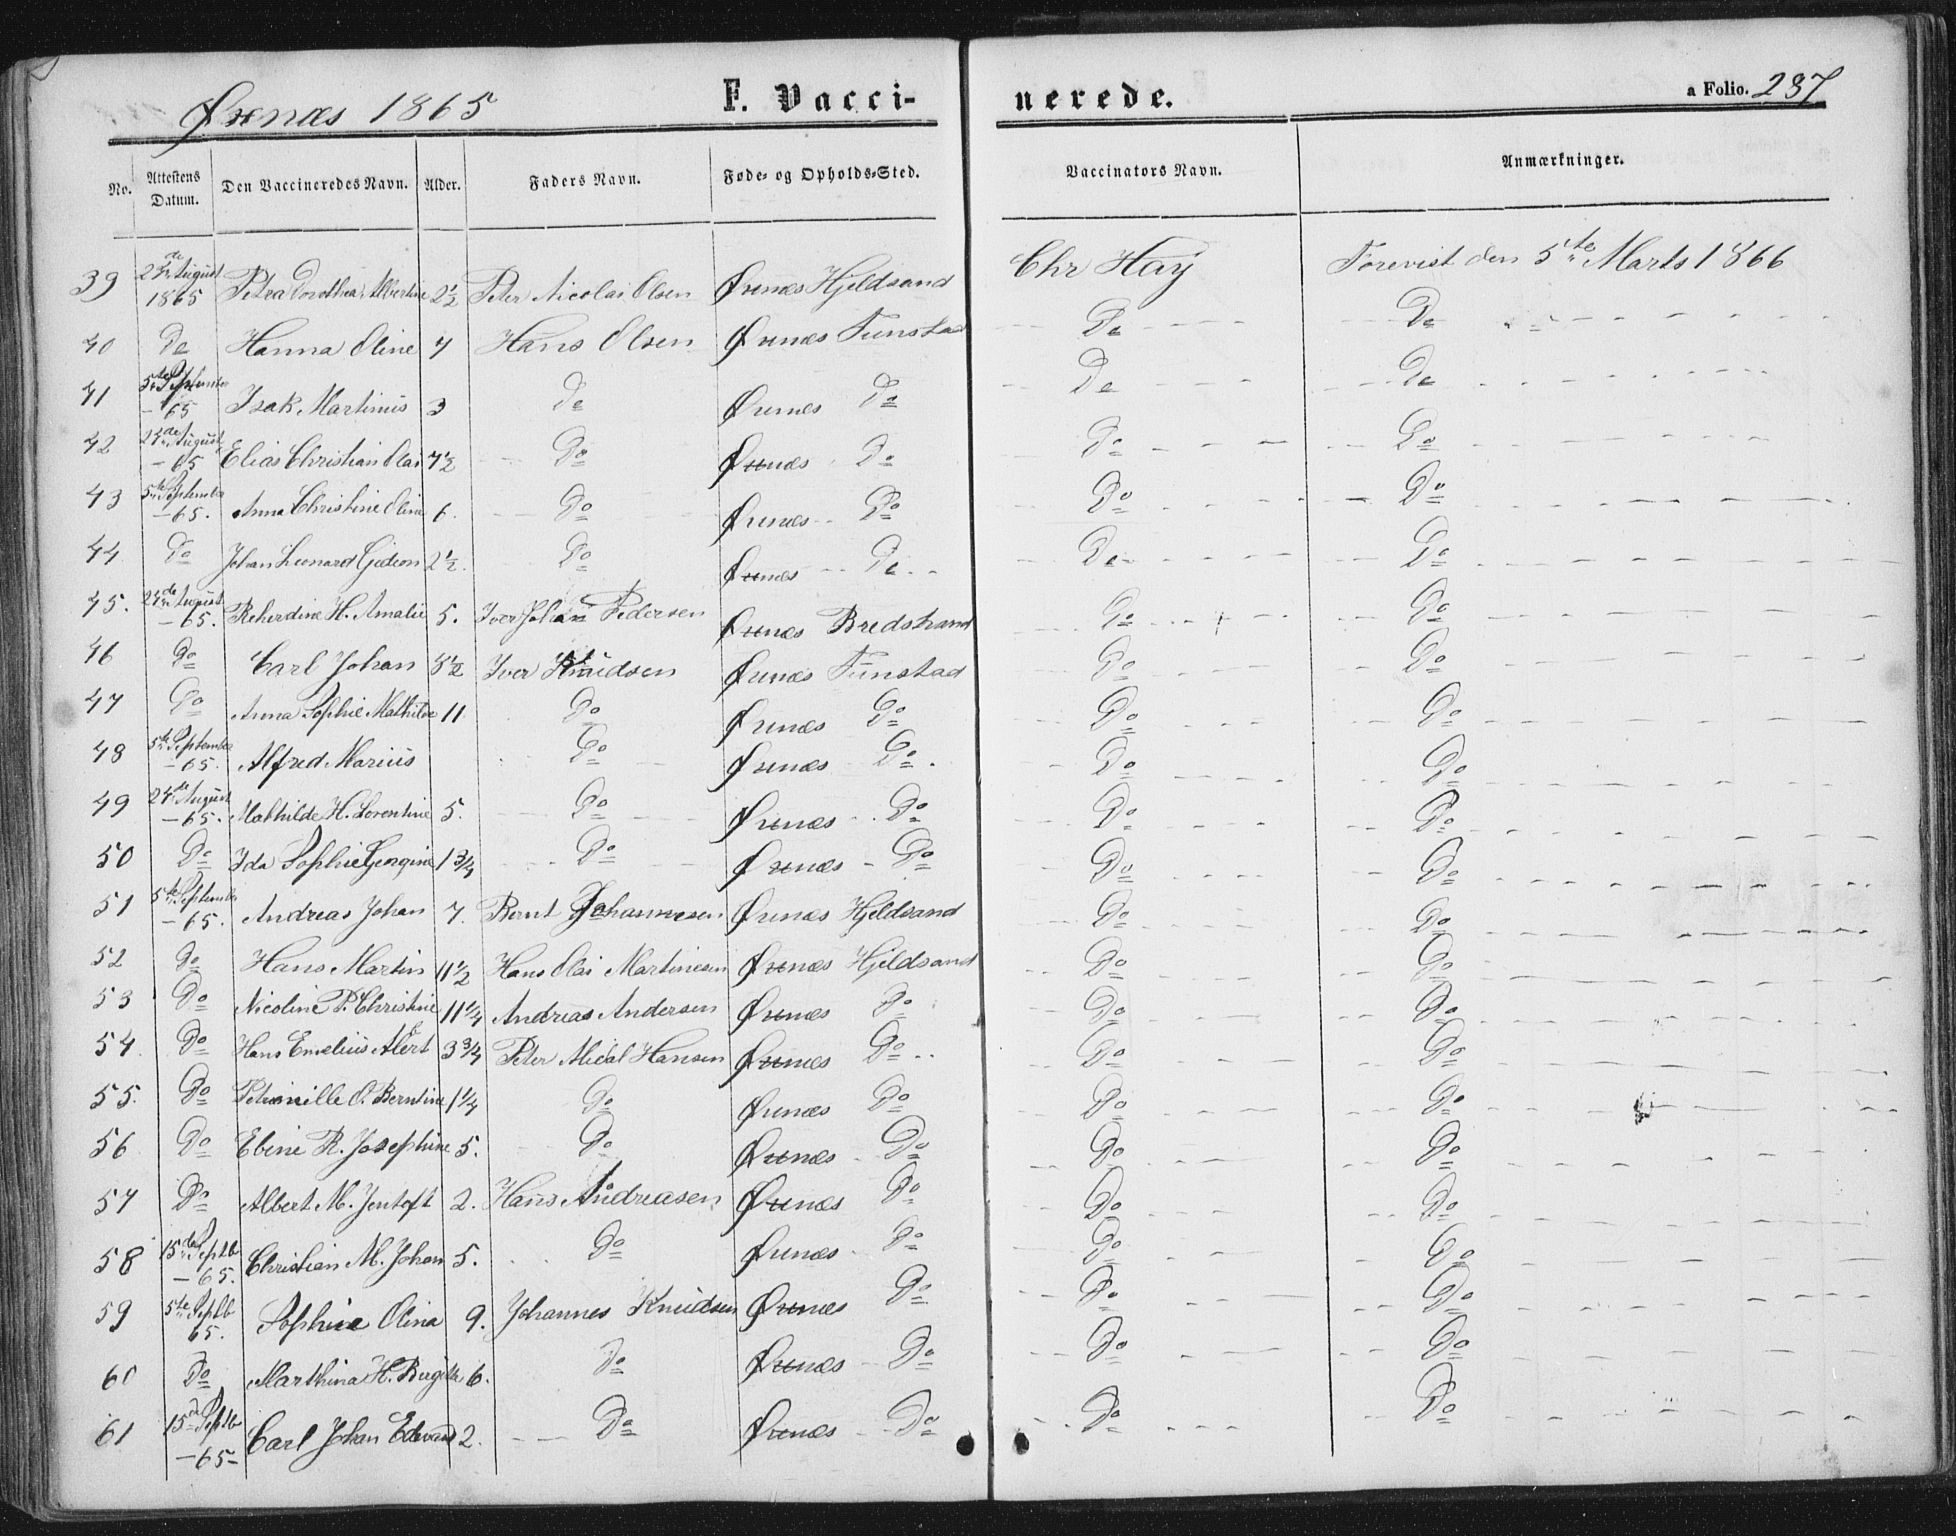 Øxnæs 1865 F. Vacci- nerede. a Folio. 237
No. Attestens Datum. Den Vaccineredes Navn. Alder. Faders Navn. Føde- og Opholds-Sted. Vaccinators Navn. Anmærkninger.
39 24de August 1865 Petra Dorothea Albertine 2½ Peter Nicolai Olsen Øxnæs Hjeldsand Chr Hay Forevist den 5te Marts 1866
40 Do Hanna Oline 4 Hans Olsen Øxnæs Tunstad Do Do
41 5te September - 65 Isak Martinus 3 Do Øxnæs Do Do Do
42 24de August - 65 Elias Christian Olai 7½ Do Øxnæs Do Do Do
43 5te September - 65. Anna Christine Oline 6. Do Øxnæs Do Do Do
44 Do Johan Leonard Gideon 2½. Do Øxnæs Do Do Do
45. 24de August - 65. H. Amalie 5. Iver Johan Pedersen Øxnæs Bredstrand Do Do
46 Do Carl Johan 8½ Iver Knudsen Øxnæs Tunstad Do Do
47 Do Anna Sophie Mathilde 11 Do Øxnæs Do Do Do
48 5te September - 65. Alfred Marius Do Øxnæs Do. Do Do
49 24de August - 65. Mathilde H. Lorentine 5. Do Øxnæs Do Do Do
50 Do Ida Sophie Georgine 1¾ Do Øxnæs Do Do Do
51 5te September - 65. Andreas Johan 7. Bernt Johannesen Øxnæs Hjeldsand Do Do
52 Do Hans Martin 11½ Hans Olai Martinesen Øxnæs Hjeldsand Do Do
53 Do Nicoline P. Christine 11¼ Andreas Andersen Øxnæs Do Do Do
54 Do Hans Emelius Albert 3¾ Peter Michal Hansen Øxnæs Do Do Do
55. Do Petronille O. Berntine 1¼ Do Øxnæs Do Do Do
56 Do Ebine R. Josephine 5. Do Øxnæs Do Do Do
57 Do Albert M. Jentoft 2. Hans Andreasen Øxnæs Do Do Do
58 15de Septb - 65. Christian M. Johan 5. Do Øxnæs Do Do Do
59 5te Septb 65. Sophie Olina 9. Johannes Knudsen Øxnæs Do Do Do
60 Do Marthina H. Birgitte 6. Do Øxnæs Do Do Do
61 15de Septb - 65 - Carl Johan Edevard 2. Do Øxnæs Do Do Do